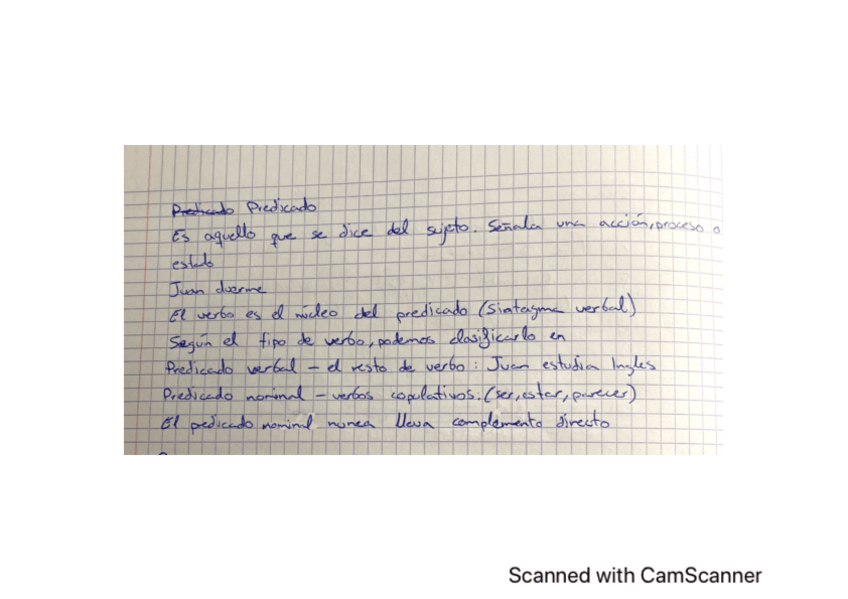 Predicado Predicado
Es aquello que se dice del sujeto. Señala una acción, proceso o
estado
Juan duerme
El verbo es el núcleo del predicado (Sintagma verbal)
Según el tipo de verbo, podemos clasificarlo en
Predicado verbal - el resto de verbo : Juan estudia Ingles
Predicado nominal - verbos copulativos. (ser, estar, parecer)
El predicado nominal nunca lleva complemento directo
Scanned with CamScanner